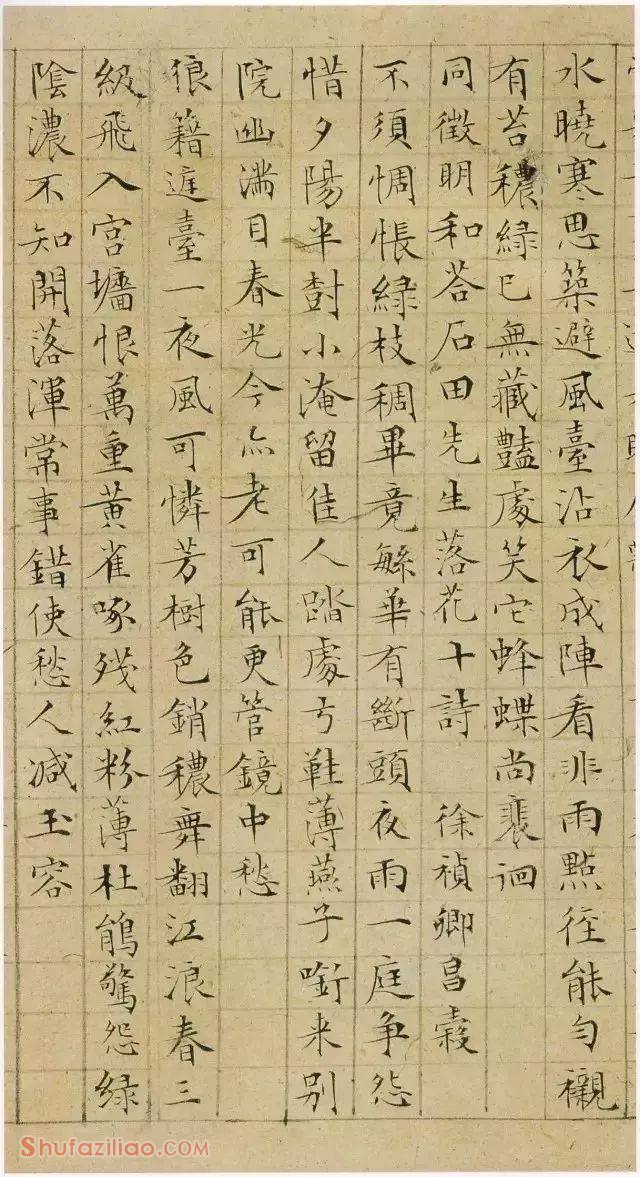 水曉寒思築避風臺沾衣成陣看非雨點徑能勻襯
有苔穠綠已無藏豔處笑它蜂蝶尚裵徊
同徵明和荅石田先生落花十詩 徐禎卿昌穀
不須惆悵綠枝稠畢竟緐華有斷頭夜雨一庭爭怨
惜夕陽半樹小淹留佳人踏處弓鞋薄燕子啣来別
院幽滿目春光今亦老可能更管鏡中愁
狼籍臺一夜風可憐芳樹色銷穠舞翻江浪春三
級飛入宮墻恨萬重黃雀啄殘紅粉薄杜鵑驚怨綠
陰濃不知開落渾常事錯使愁人減玉容
Shufaziliao.com